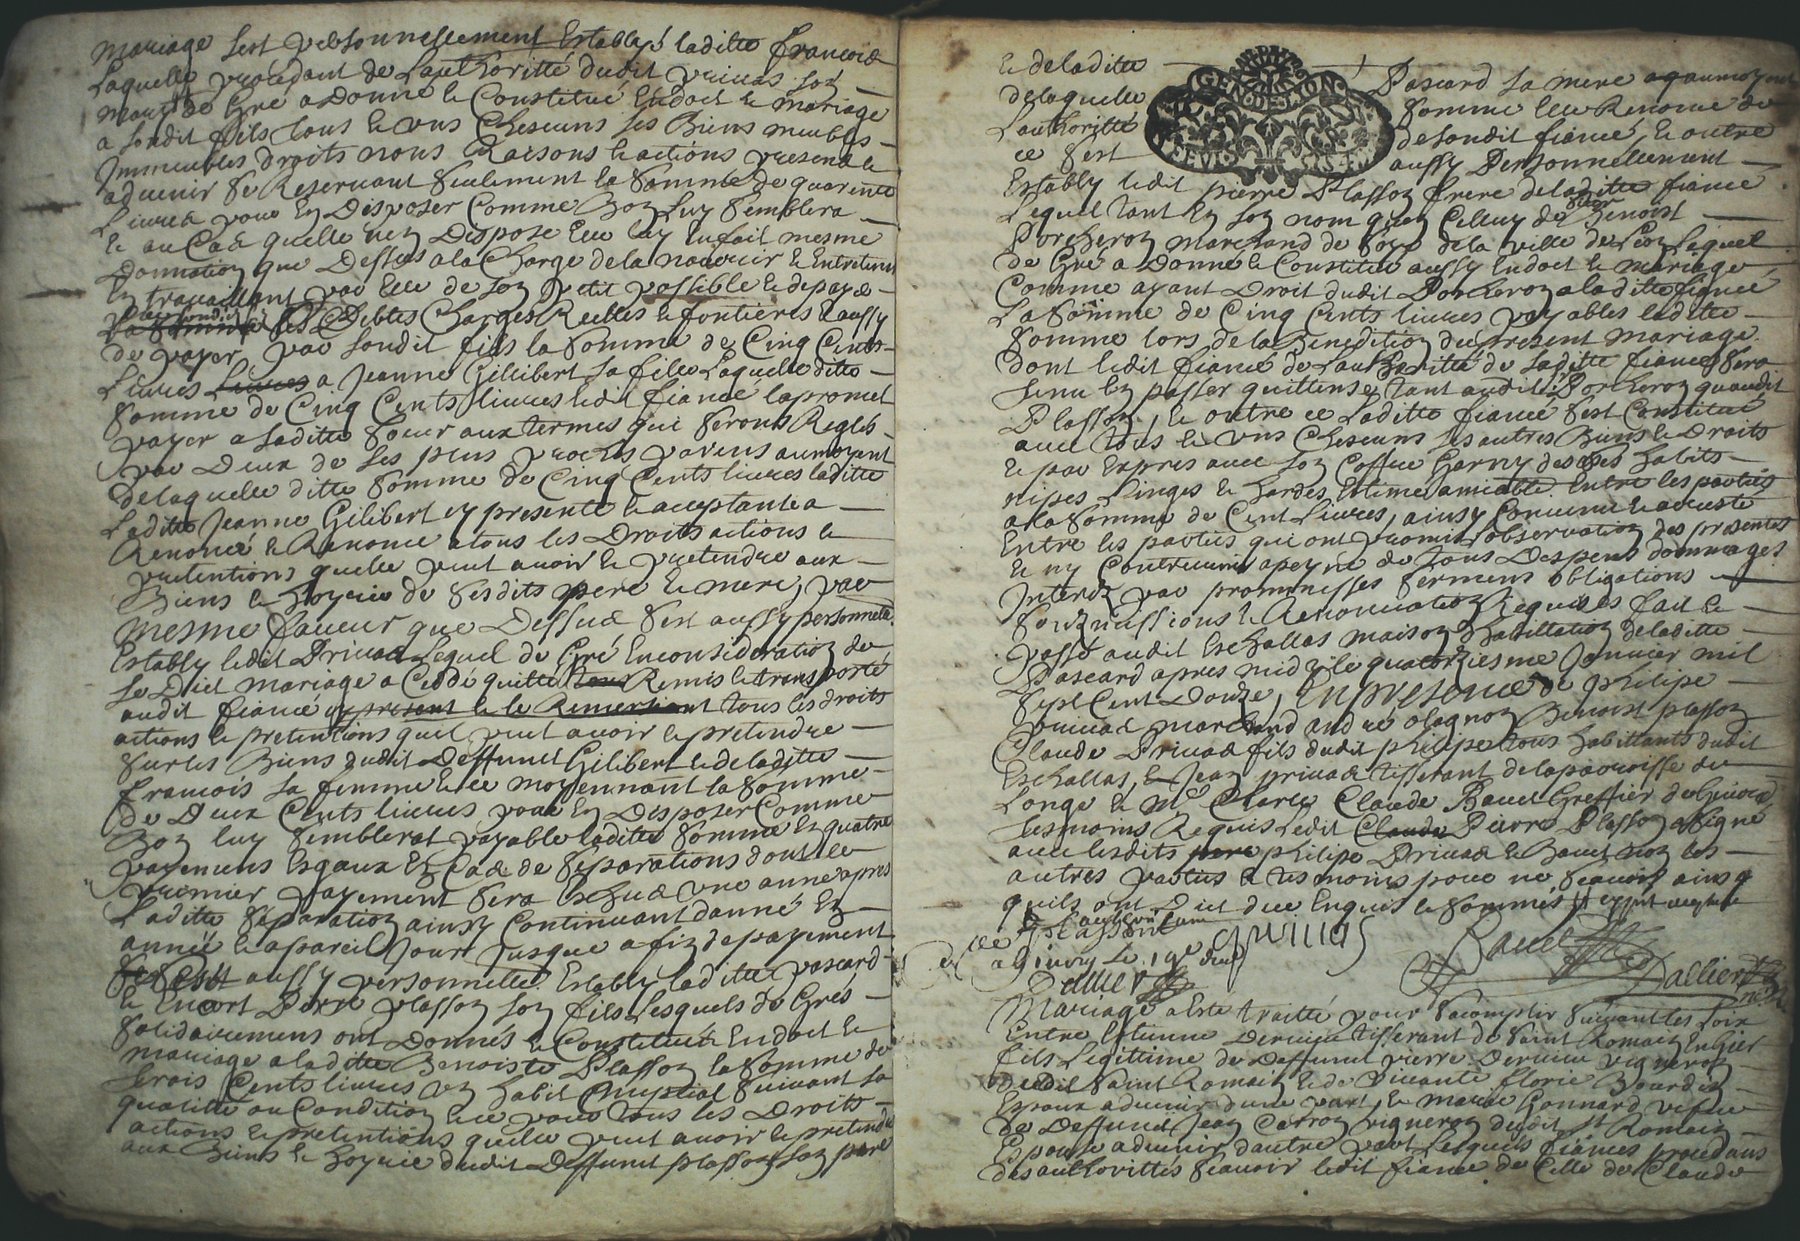 mariage sest personnellement Establyë laditte francoise
Laquelle procedant de Lauthoritté dudit privas son
mary de Gré a Donné & Constitué Endoct & mariage
a sondit fils tous & vns Chescuns ses Biens meubles
Immeubles droits noms Raisons & actions presens &
aduenir se Reseruant seulement la somme de quarente
Liures pour En Disposer Comme Bon Luy semblera
& au Cas quelle nen Dispose Elle luy En fait mesme
Donnation que Dessus a la Charge de la nourrir & Entretenir
En travaillant par elle de son petit possible & de payer
ses Debtes Charges Reelles & fontieres & aussy
de payer par sondit fils la somme de Cinq Cents
Liures Liures a Jeanne Gilibert sa fille Laquelle ditte
somme de Cinq Cents liures ledit fiancé la promet
payer a saditte soeur aux termes qui seront Reglés
par Deux de ses plus proches parens au moyent
de laquelle ditte somme de Cinq Cents liures laditte
Laditte Jeanne Gilibert cy presente & acceptante a
Renoncé & Renonce a tous les Droits actions &
pretentions quelle peut avoir & pretendre aux
Biens & hoyrie de sesdits pere & mere, par
mesme faueur que Dessus sest aussy personnelle
Estably ledit Privas Lequel de Gré En consideration de
se Dict mariage a Ceddé quitté Remis & transporté
audit fiancé cy present & le Remerciant tous les droits
actions & pretentions quil peut avoir & pretendre
sur les Biens dudit Deffunct Gilibert & de laditte
francoise sa femme & ce moyennant la somme
de Deux Cents liures pour En Disposer Comme
Bon luy semblerat payable laditte somme En quatre
payemens Esgaux En Cas de separations dont le
premier payement sera Eschus vne année apres
Laditte separation ainsy Continuant danné En
année & a pareil Jour Jusque a fin de payement
sest aussy personnelle Estably laditte pascard
& Encort Pierre plasson son fils Lesquels de Grés
solidairement ont Donnés & Constitué En doct &
mariage a laditte Benoiste Plasson la somme de
trois Cents liures vn habit Nuptial suivant sa
qualitté ou Condition & ce pour tous les Droits
actions & pretentions quelle peut avoir & pretendre
aux Biens & hoyrie dudit Deffunct plasson son pere
& de laditte Pascard sa mere
de laquelle somme Elle Renonce de
Lauthoritté de sondit fiancé, & outre
ce sest aussy Personnellement
Estably ledit pierre Plasson frere de laditte fiancé
Lequel tant En son nom quen Celluy de sieur Benoist
Porcheron marchand de soye de la ville de Lion Lequel
de Gré a Donné & Constitué aussy En doct & mariage
Comme ayant Droit dudit Porcheron a laditte fiancé
La somme de Cinq Cents liures payables laditte
somme lors de la Benediction du present mariage
dont ledit fiancé de Lauthoritté de laditte fiancé sera
tenu En passer quittense tant audit sr Porcheron quaudit
Plasson, & outre ce Laditte fiancé sest Constitué
auec tous & vns Chescuns ses autres Biens & Droits
& par Expres auec son Coffre Garny de ses habits
nipes Linges & hardes Estime amiable Entre les parties
a la somme de Cent Liures, ainsy Conuenu & aresté
Entre les parties qui ont promis lobservation des presentes
& ny Contreuenir a peyne de tous Despens dommages
Interez par promisses sermens obligations
soubmissions & Renonciation Requises fait &
passé audit Eschallas maison dhabittation de laditte
Pascard apres midy le quatorziesme Januier mil
sept Cent Douze, En presence de philipe
privas marchand andré olagnon Benoist plasson
Claude Privas fils dudit philipe tous habittants dudit
Eschallas, & Jean privas tisserant de la parroisse de
Longe & Me Claude Bauet Greffier de Giuors
tesmoins Requis Ledit Claude Pierre Plasson a signé
auec lesdits pere philipe Privas & Bauet non les
autres parties & tesmoins pour ne scauoir ainsy
quils ont Dict du Enquis & sommés
Plasson
a Givors Le 19e
privas
Bauet
Dallier
Mariage a Esté traitté pour sacomplir suivant les loix
Entre Estienne Dervieu tisserant de saint Romain En Gier
fils Legittime de Deffunct pierre Dervieu vigneron
dudit saint Romain & de viuante florie Bourdin
Espoux aduenir dune part, & marie Gonnard vefue
de Deffunct Jean Carron vigneron dudit st Romain
Espouse aduenir dautre part Lesquels fiancés procedans
des authorittés scauoir ledit fiancé de Celle de Claude